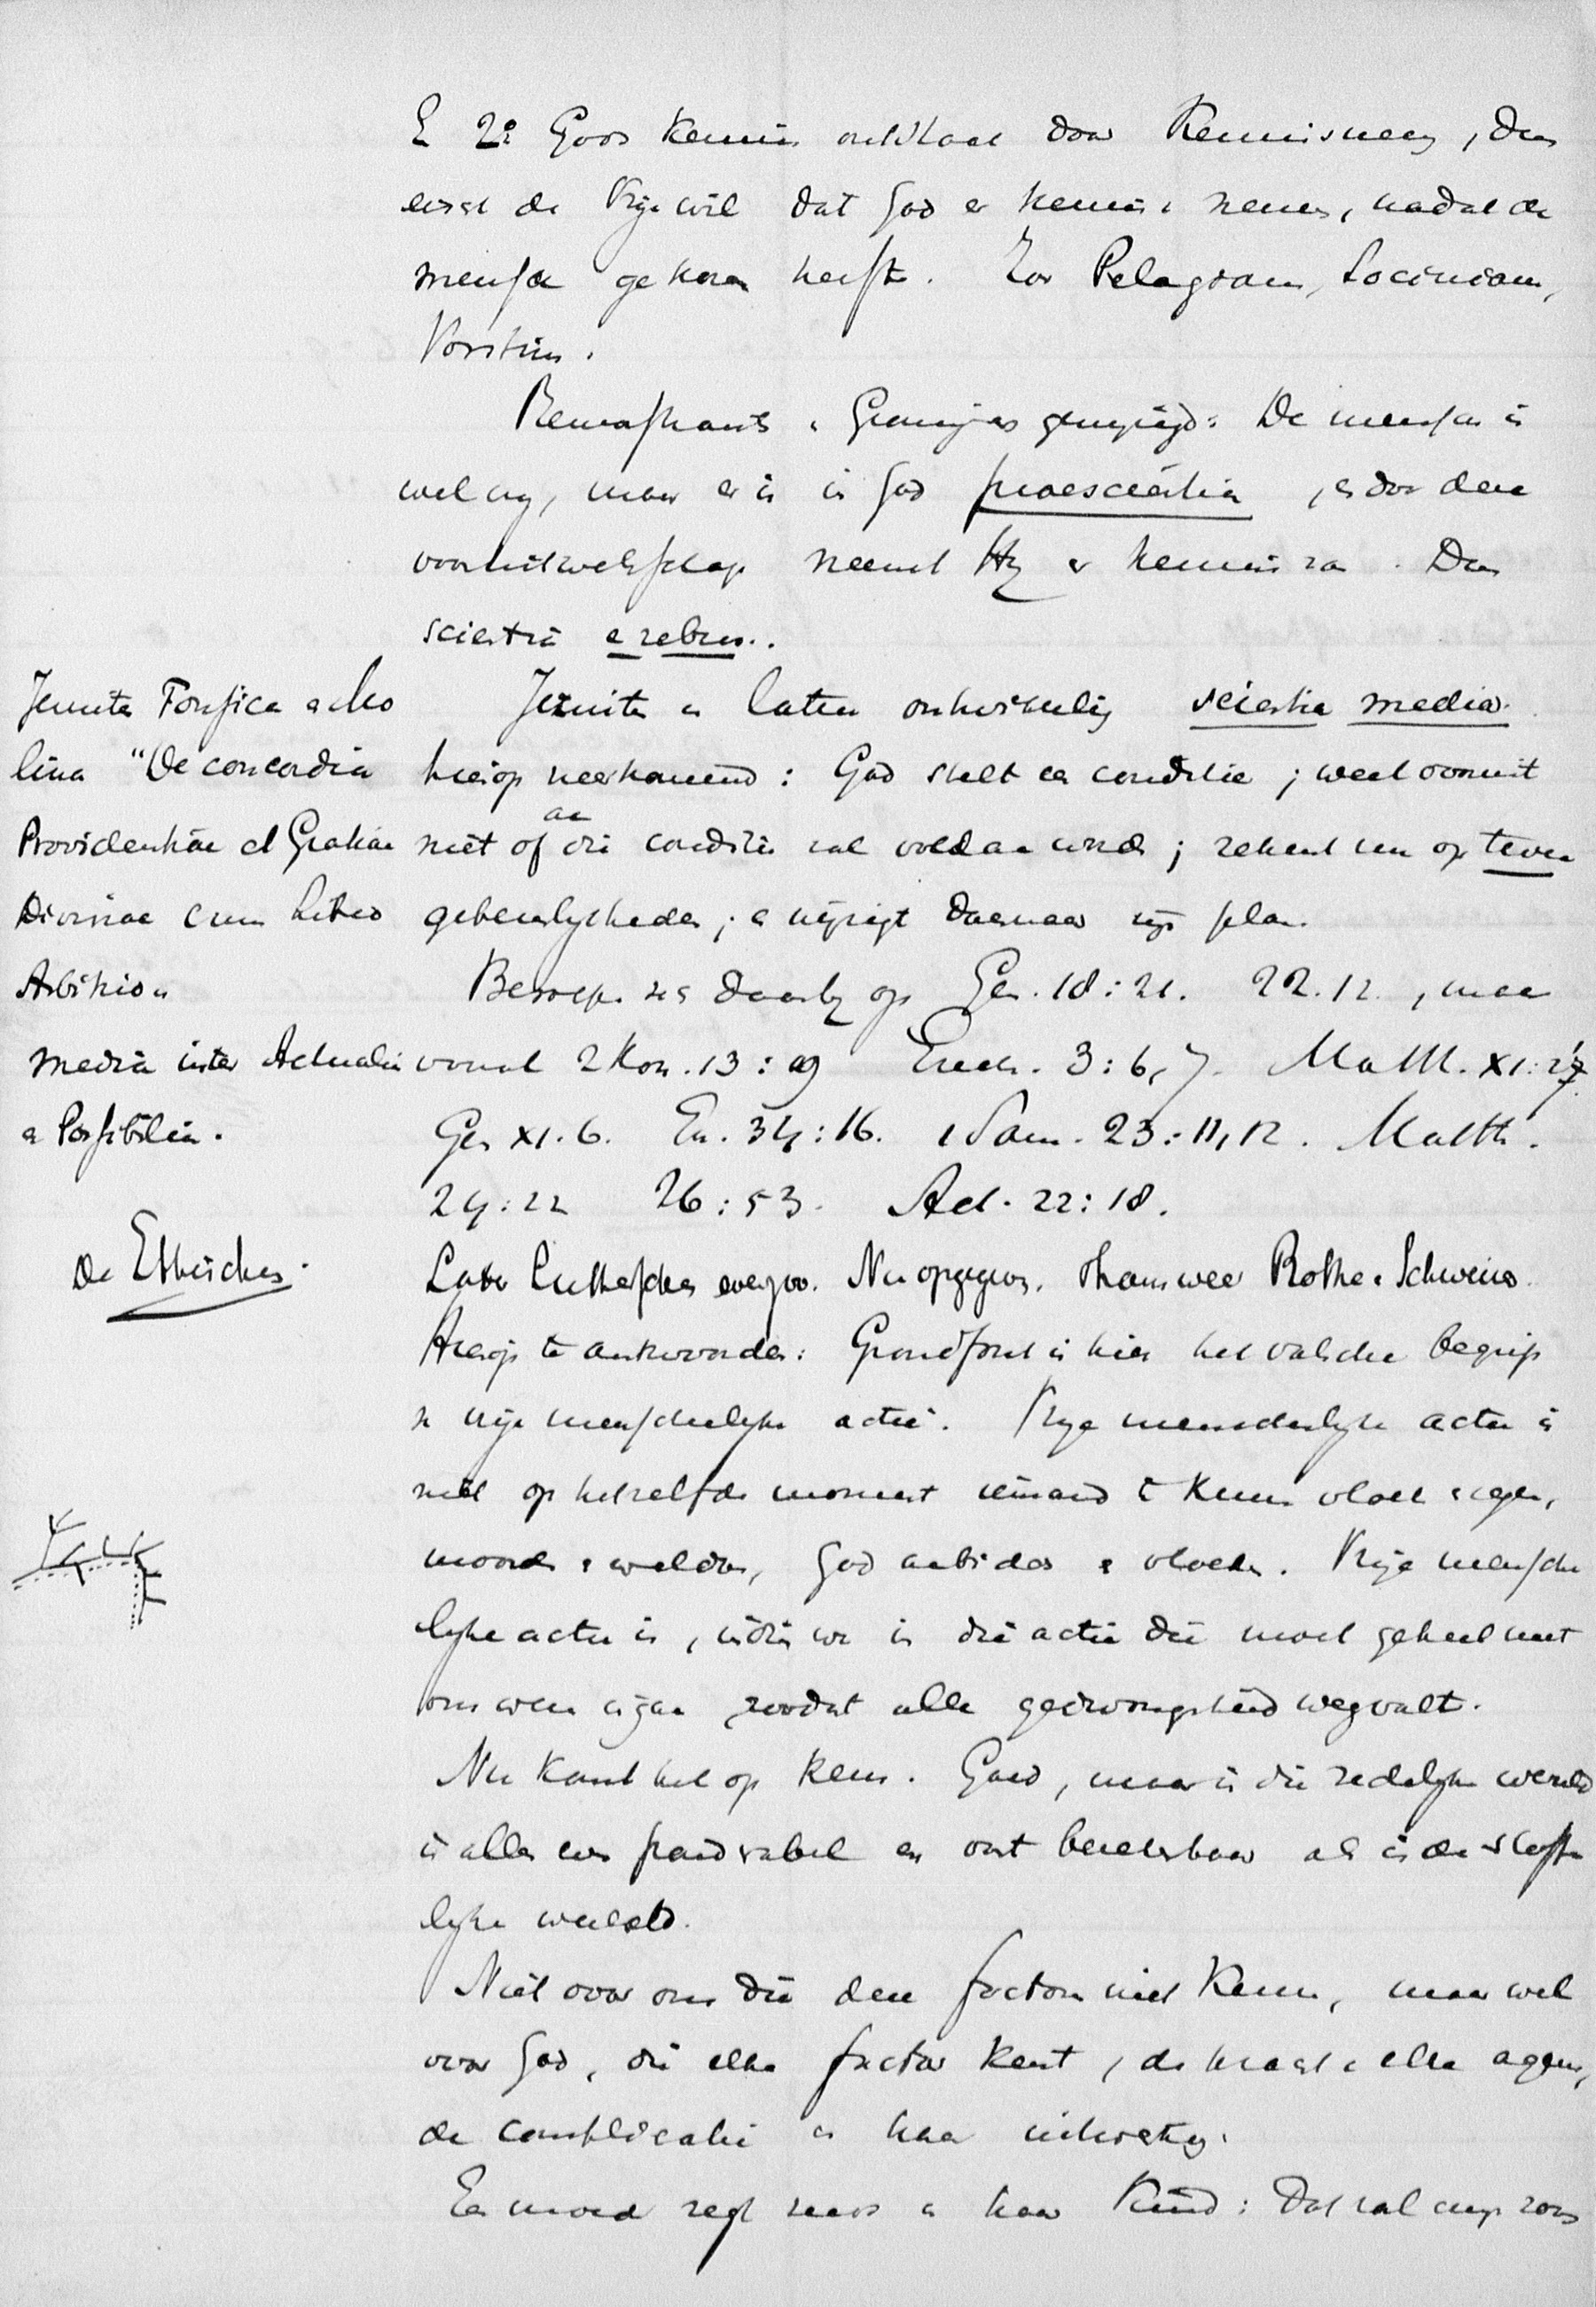 E 2° Gods kennis ontstaat door Kennisneming, dan
eischt de Vrije wil dat God er kennis v neme, nadat de
mensch gekozen heeft. Zoo Pelagianen, Socinianen,
Vorstius.
Remonstrants. De mensch is
wel vrij, maar er is in God praescientia, en door deze
vooruitwetenschap neemt Hij er kennis van. Dan
scientia e rebus.
Jezuiten Fonseca en Mo
lina "De concordia
Providentiae et Gratiae
Divinae cum Libero
Arbitrio"
media inter Actualia
en Possibilia.
Jezuiten en laten ontwikkeling scientia media
hierop neerkomend: God stelt een conditie; weet vooruit
niet of aan die conditie zal voldaan worden; rekent dan op twee
gebeurlijkheden; en wijzigt daarnaar zijn plan.
Beroepen zich daarbij op Gen. 18:21. 22.12, maar
vooral 2 Kon. 13:19 Ezech. 3:6,7. Matth. XI:27
Gen XI.6. Ex. 34:16. 1 Sam. 23:11,12. Matth.
24:22 26:53. Act. 22:18.
De Ethischen.
Later Lutherschen evenzoo. Nu opgegeven. Thans weer Rothe.
Hierop te antwoorden: Grondfout is hier het valsche begrip
v vrije menschelijke actie. Vrije menschelijke actie is
niet op hetzelfde moment iemand te kunnen vloeken en zegenen,
moorden en weldoen, God aanbidden en vloeken. Vrije mensche
lijke actie is, indien we in die actie die moet geheel met
ons wezen ingaan zoodat alle gedwongenheid wegvalt.
Nu komt het op kennen. Goed, maar in die zedelijke wereld
is alles even ponderabel en vast berekenbaar als in de stoffe
lijke wereld.
Niet voor ons die den factor niet kennen, maar wel
voor God, die elken factor kent, de kracht v elke agens,
de complicatie en haar uitwerking.
Een moeder zegt reeds v haar Kind: Dat zal mijn